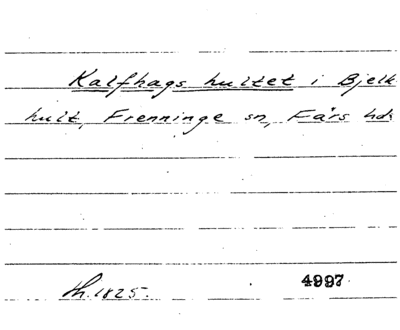 Kalfhags hultet i Bjelk-
hult, Frenninge sn, Färs hd.
Th. 1825. 4997